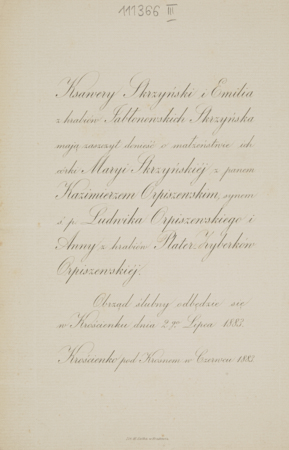 111366 III
Ksawery Skrzyński i Emilia
z hrabiów Jabłonowskich Skrzyńska
mają zaszczyt donieść o małżeństwie ich
córki Maryi Skrzyńskiéj z panem
Kazimierzem Orpiszewskim, synem
ś. p. Ludwika Orpiszewskiego i
Anny z hrabiów Plater Zyberków
Orpiszewskiéj.
Obrząd ślubny odbędzie się
w Krościenku dnia 2go Lipca 1883
Krościenko pod Krosnem w Czerwcu 1883